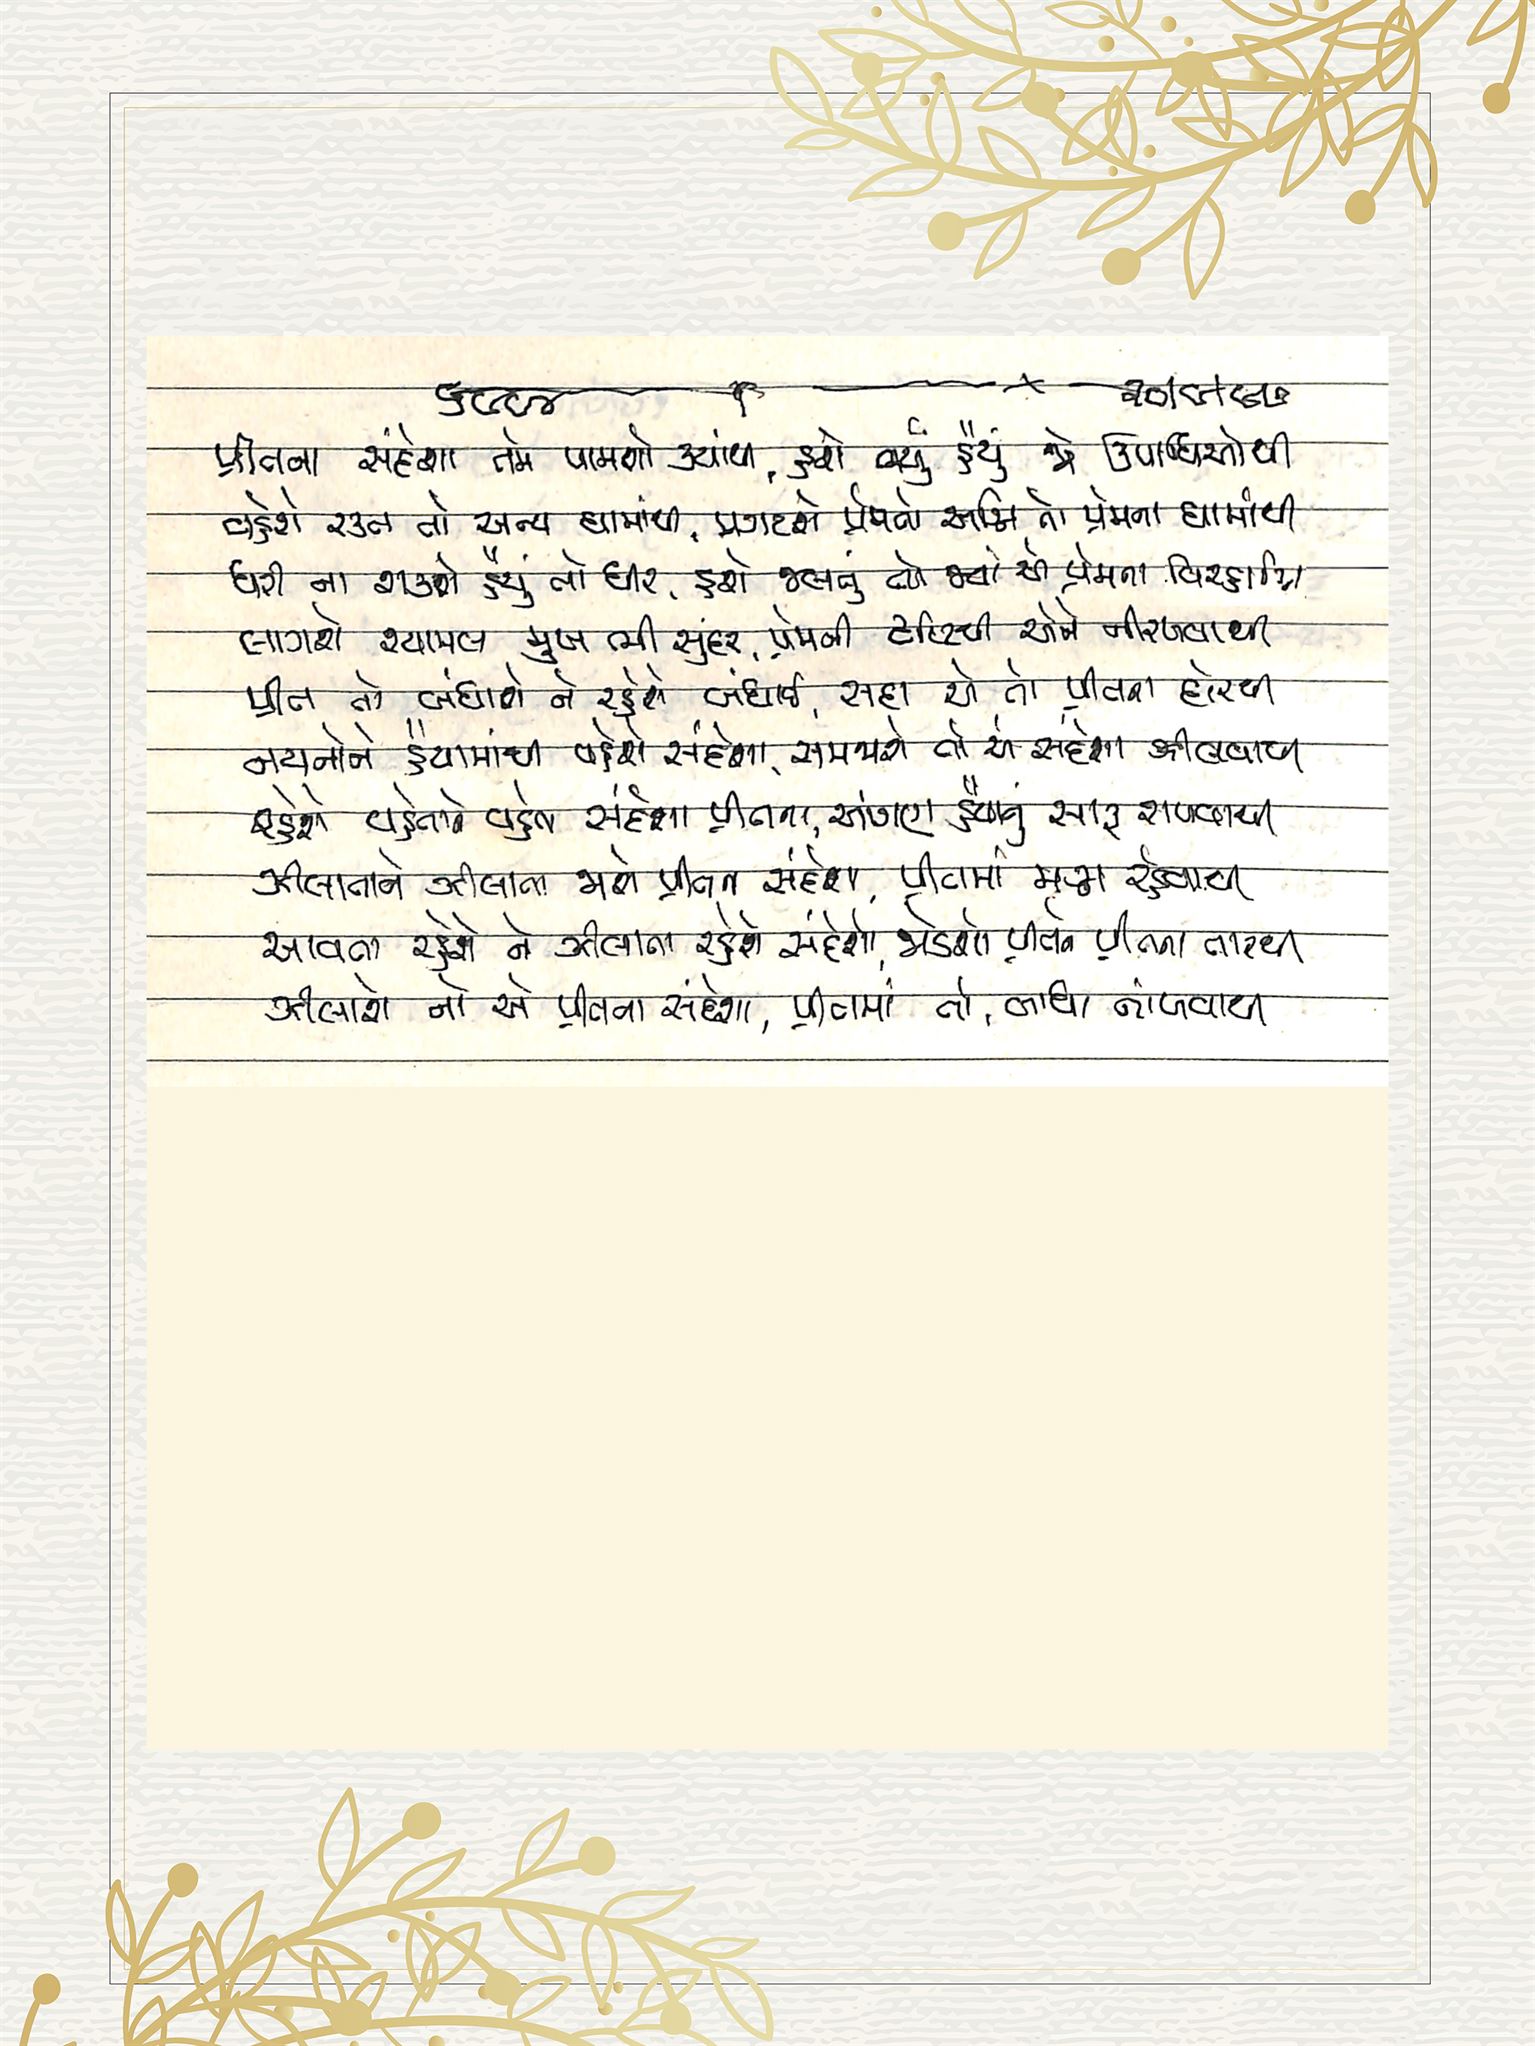 પ્રીતના સંદેશા તમે પામશો ક્યાંથી, હશે ભર્યું હૈયું જે ઉપાધિઓથી
વહેશે રક્ત તો અન્ય ઘામાંથી, પ્રગટશે પ્રેમનો અગ્નિ તો પ્રેમના ઘામાંથી
ધરી ના શકશે હૈયું તો ધીર, હશે જલતું તો જ્યાં એ પ્રેમના વિરહાગ્નિ
લાગશે શ્યામલ મુખ ભી સુંદર, પ્રેમની દૃષ્ટિથી એને નીરખવાથી
પ્રીત તો બંધાશે ને રહેશે બંધાઈ, સદા એ તો પ્રીતના દોરથી
નયનોને હૈયામાંથી વહેશે સંદેશા, સમજાશે તો એ સંદેશા ઝીલવાથી
રહેશે વહેતાને વહેતા સંદેશા પ્રીતના, અંજાણ હૈયાનું સારૂ શખવાથી
ઝીલાતાને ઝીલાતા જાશે પ્રીતના સંદેશા, પ્રીતમાં મગ્ન રહેવાથી
આવતા રહેશે ને ઝીલાતા રહેશે સંદેશો, જોડશો પ્રીતને પ્રીતના તારથી
ઝીલાશે નો એ પ્રીતના સંદેશા, પ્રીતમાં તો, બાધા નાંખવાથી